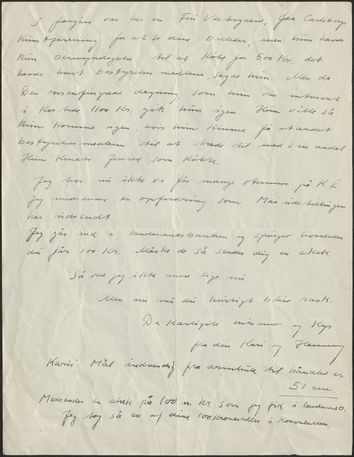 I forgårs var her en Fru Vestergaard, fra Carlsberg
Kunstforening for at se dine Billeder, men hun havde
kun Bemyndigelse til at købe for 500 Kr. det
havde hvert bestyrelsesmedlem, sagde hun. Men da
Den rosafingrede dagning, som hun var interesseret
i kostede 1100 Kr. gik hun igen. Hun ville så
komme igen, hvis hun kunne få et andet
bestyrelsesmedlem til at træde til med sin andel
Hun kunde som købte.
Jeg tror nu ikke vi får mange stemmer på K.E.
Jeg medsender en opfordring som Mai udstillingen
har rundsendt.
Jeg går ind i landmandsbanken og spørger hvordan
du får 100 Kr. Måske de så sender dig en check
Så ved jeg ikke mere lige nu
Men nu må du hurtigt blive rask.
De kærligste hilsener og Kys
fra din Kari og Henning
Karis Mål indvendig fra armhule til håndled er
51 cm
Medsender en check på 100 n. Kr. som jeg fik i landmandsb.
Jeg tog så en af dine 100kronesedler i Konvolutten.